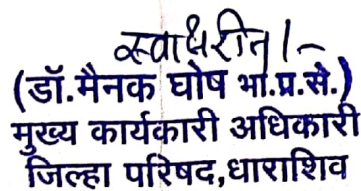 स्वाक्षरीत/-
(डॉ.मैनक घोष भा.प्र.से.)
मुख्य कार्यकारी अधिकारी
जिल्हा परिषद,धाराशिव